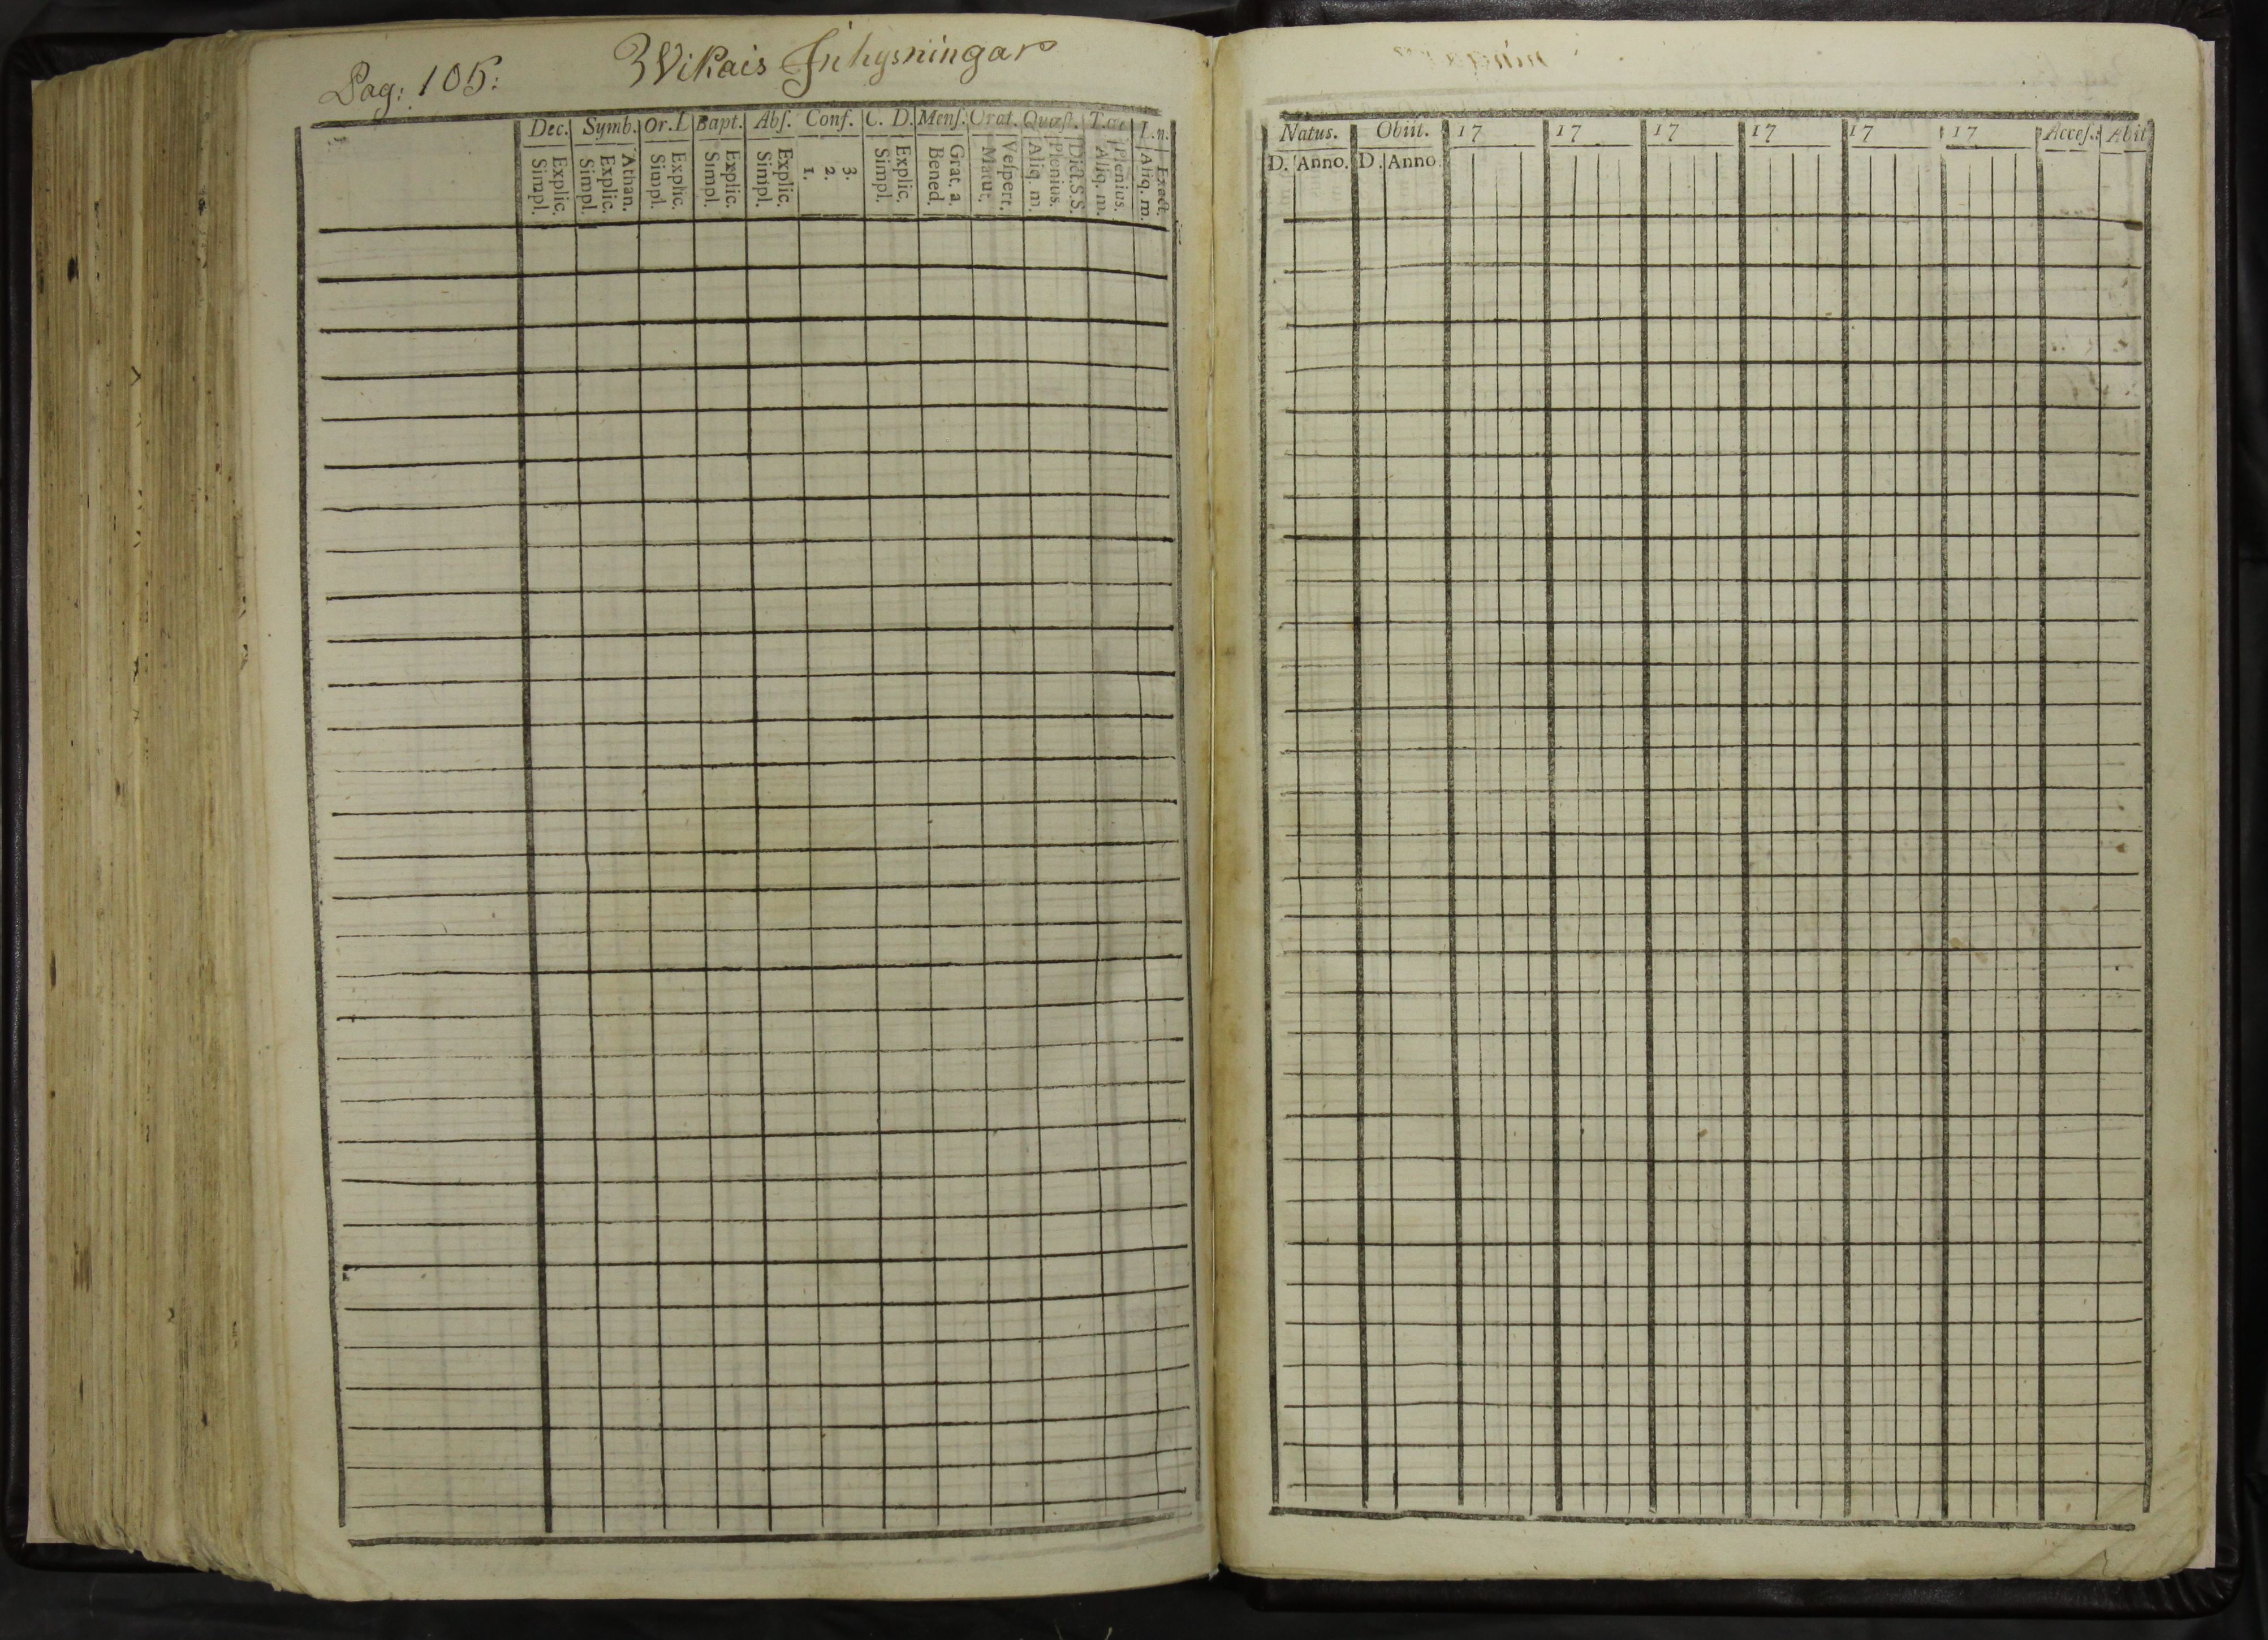 Pag: 105:
Wikais Inhysningar
Dec. Symb. Or. L Bapt. Abſ. Conf. C. D. Menſ. Orat. Quæſt. L. n.
Simpl. Explic. Simpl. Explic. Athan. Simpl. Explic. Simpl. Explic. Simpl. Explic. 1. 2. 3. Simpl. Explic. Bened. Grat. a. Matut. Veſpert. Aliq. m. Plenius. Dict. S. S. Aliq. m. Plenius. Aliq. m. Exact.
Natus. Obiit. 17 17 17 17 17 17 Acceſ. Abit
D. Anno. D. Anno.